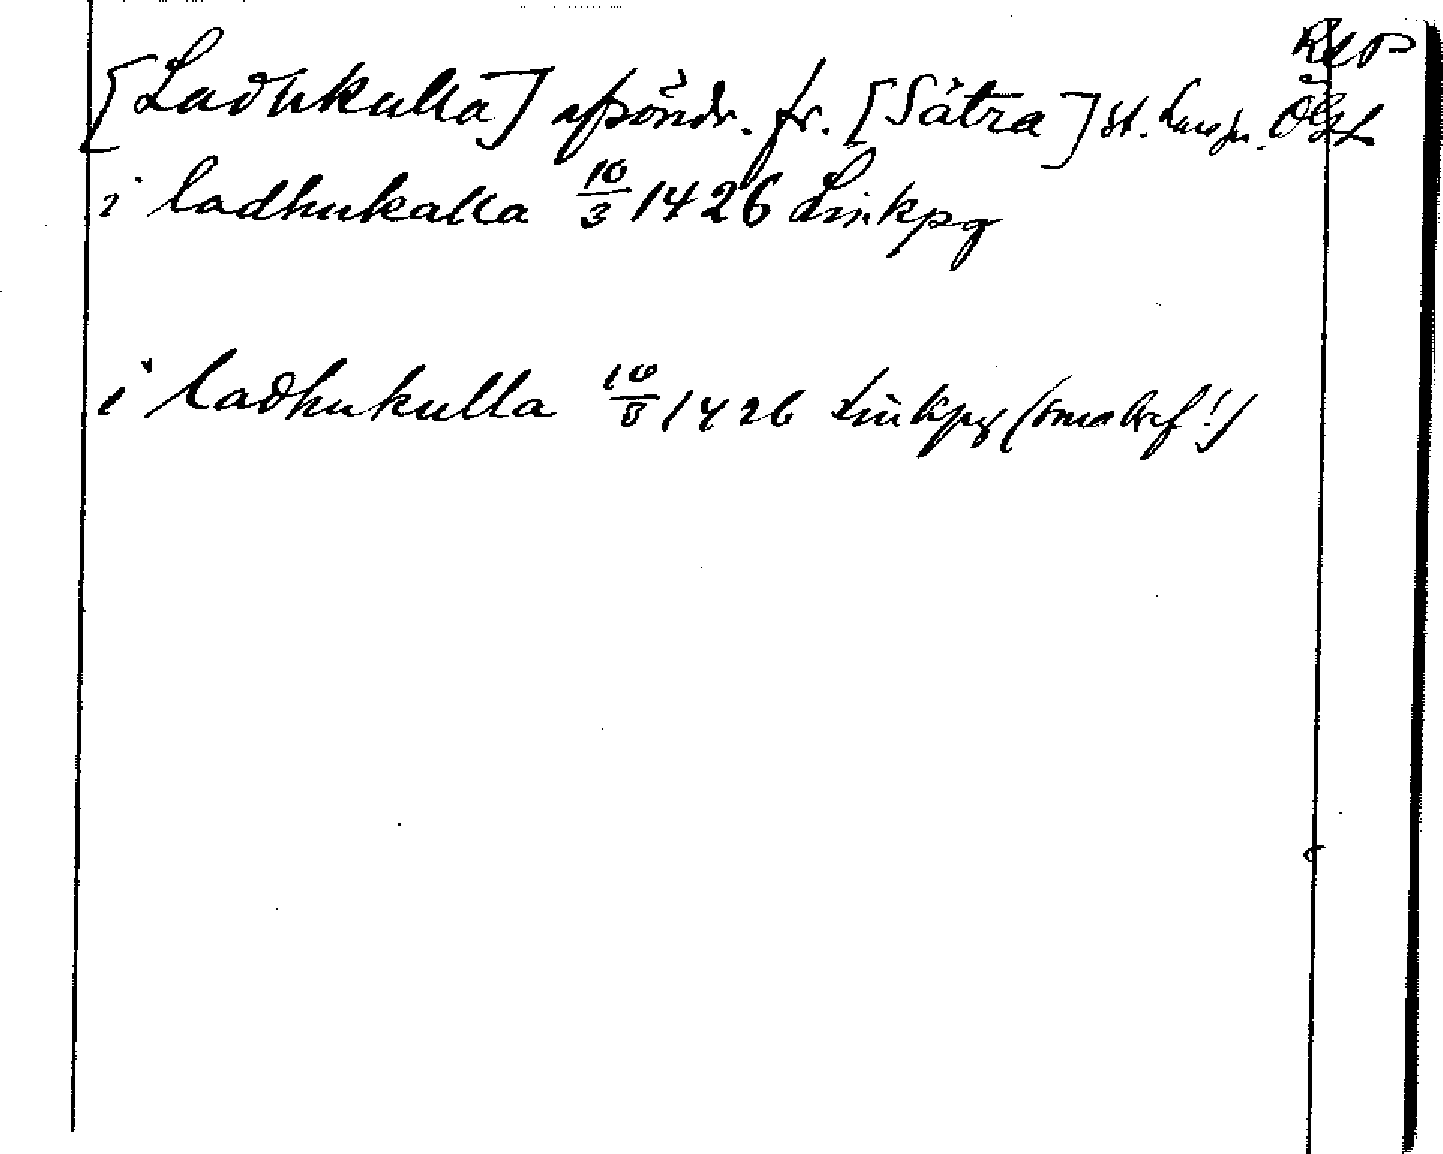 [Ladhkulla] spöndr. fr. [Sätra] st. ÖgL
i ladhukalla 10/3 1426 Linkpg
i ladhukulla 10/8 1426 Linkpg (sma brf!)